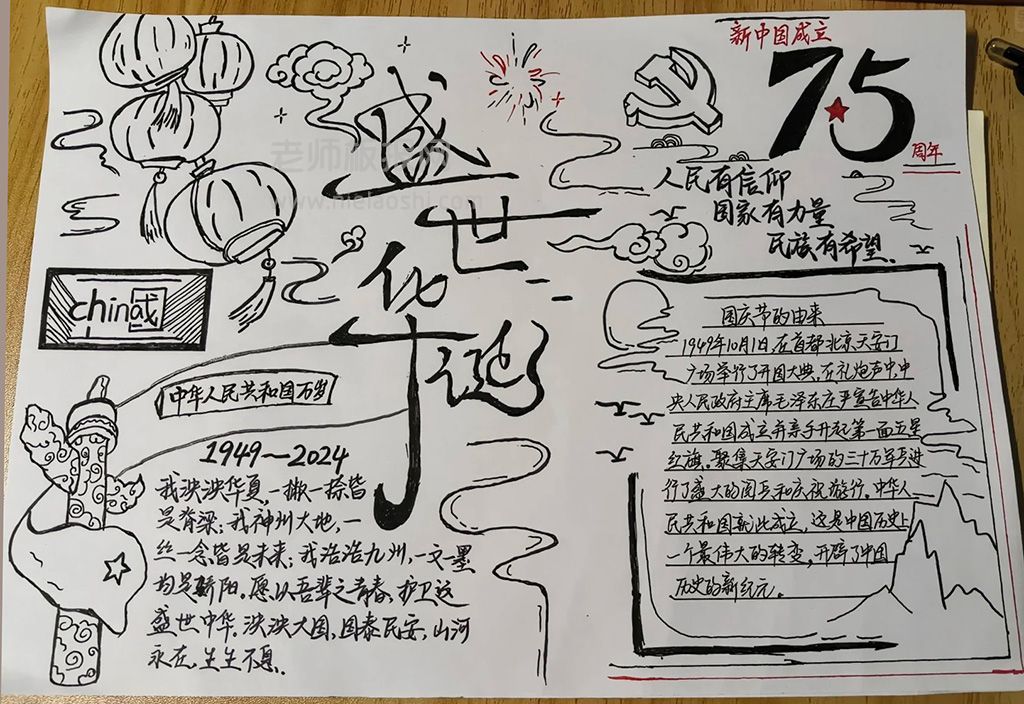 新中国成立
75
周年
盛世华诞
人民有信仰
国家有力量
民族有希望.
china国
中华人民共和国万岁
1949—2024
我泱泱华夏,一撇一捺皆
是脊梁;我神州大地,一
丝一念皆是未来;我浩浩九州,一文一墨
均是骄阳,愿以吾辈之青春,护卫这
盛世中华,泱泱大国,国泰民安,山河
永在,生生不息..
国庆节的由来
1949年10月1日,在首都北京天安门
广场举行了开国大典,在礼炮声中,中
央人民政府主席毛泽东庄严宣告中华人
民共和国成立并亲手升起第一面五星
红旗。聚集天安门广场的三十万军民进
行了盛大的阅兵和庆祝游行。中华人
民共和国就此成立,这是中国历史上
一个最伟大的转变,开辟了中国
历史的新纪元。
www.melaoshi.com